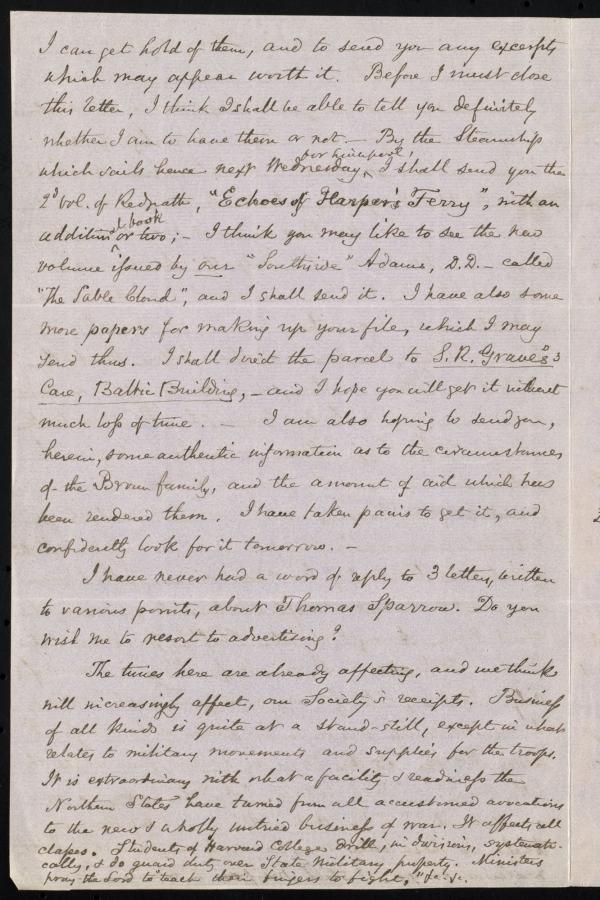 I can get hold of them, and to send you any excerpts
which may appear worth it. Before I must close
this letter, I think I shall be able to tell you definitely
whether I am to have them or not. – By the Steamship
for Liverpool,
which sails hence next Wednesday, I shall send you the
2d vol. of Redpath, "Echoes of Harper's Ferry", with an
book
addition or two; – I think you may like to see the new
volume issued by our "Southside" Adams, D.D. – called
"The Sable Cloud", and I shall send it. I have also some
more papers for making up your file, which I may
send thus. I shall direct the parcel to S. R. Graves's
Care, Baltic Building, – and I hope you will get it without
much loss of time. – I am also hoping to send you,
herein, some authentic information as to the circumstances
of the Brown family, and the amount of aid which has
been rendered them. I have taken pains to get it, and
confidently look for it tomorrow. –
I have never had a word of reply to 3 letters, written
to various points, about Thomas Sparrow. Do you
wish me to resort to advertising?
The times here are already affecting, and we think
will increasingly affect, our Society's receipts. Business
of all kinds is quite at a stand-still, except in what
relates to military movements and supplies for the troops.
It is extraordinary with what a facility & readiness the
Northern States have turned from all accustomed avocations
to the new & wholly untried business of war. It affects all
classes. Students of Harvard College drill, in divisions, systemati-
cally, & do guard duty over State Military property. Ministers
pray the Lord to "teach their fingers to fight," &c. &c.